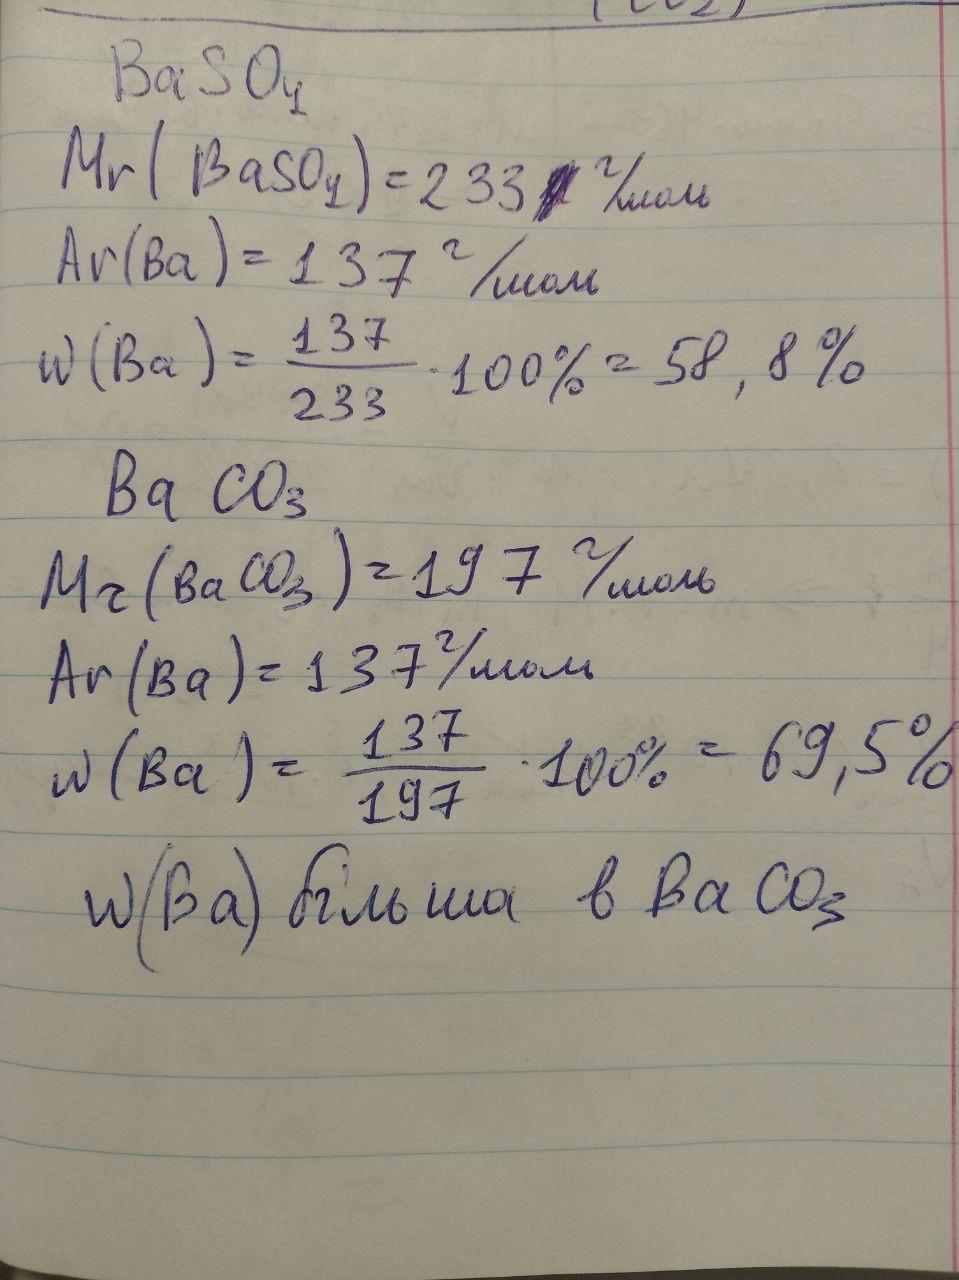 BaSO₄
Mr(BaSO₄) = 233 г/моль
Ar(Ba) = 137 г/моль
w(Ba) = 137/233 · 100% = 58,8%
BaCO₃
Mr(BaCO₃) = 197 г/моль
Ar(Ba) = 137 г/моль
w(Ba) = 137/197 · 100% = 69,5%
w(Ba) більша в BaCO₃